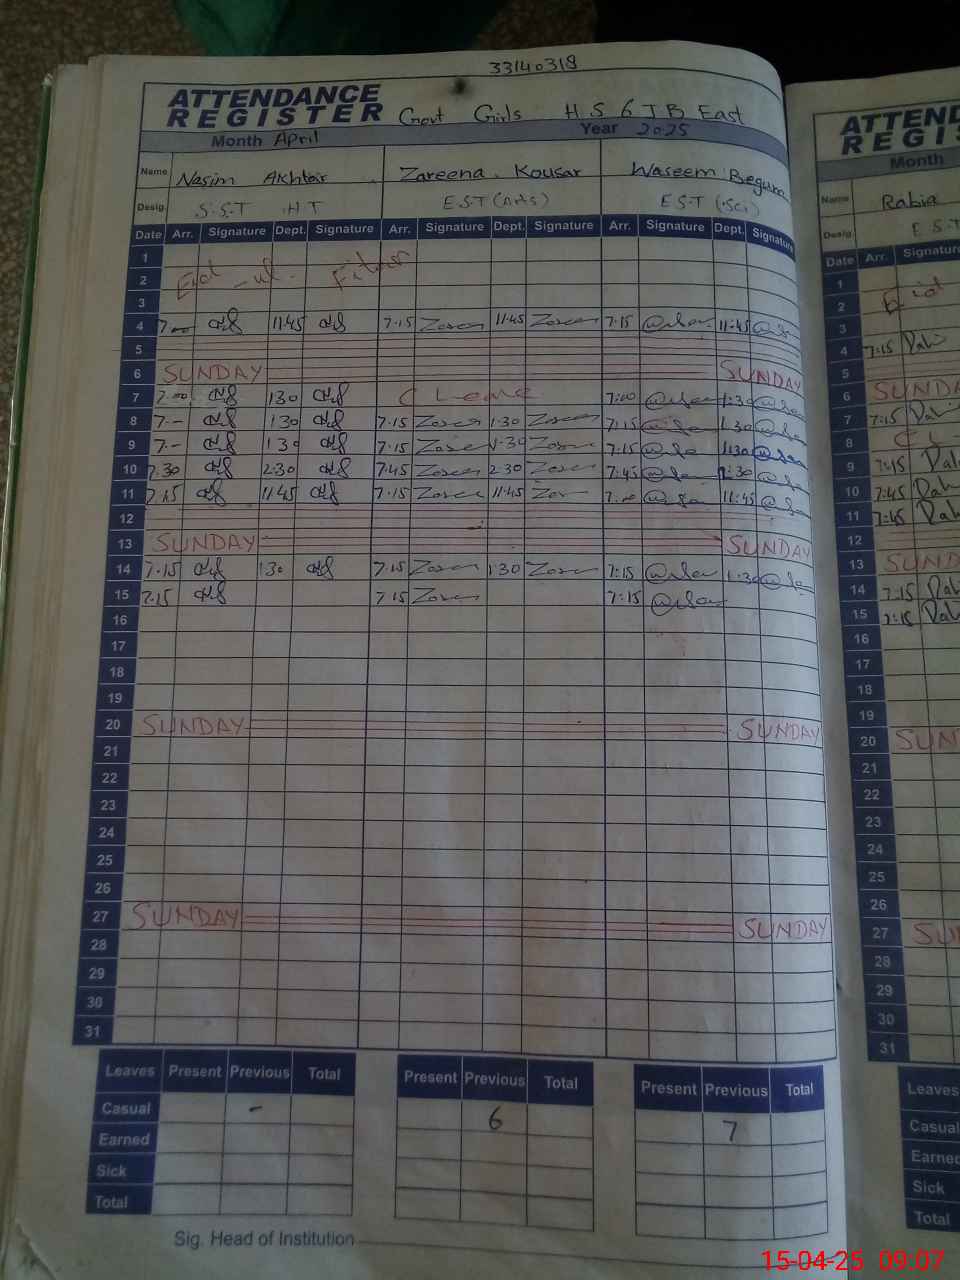 33140318
ATTENDANCE
REGISTER Govt Girls H.S 6 J B East
Month April Year 2025
Name Nasim Akhtar Zareena Kousar Waseem Begum
Desig. S.S.T HT E.S.T (Arts) E.S.T (Sci)
Date Arr. Signature Dept. Signature Arr. Signature Dept. Signature Arr. Signature Dept. Signature
1
2 Eid - ul - Fitar
3
4 7.00 11.45 7.15 11.45 7.15 11.45
5
6 SUNDAY SUNDAY
7 7.00 1 30 C Leave 7:00 1:30
8 7.- 1 30 7.15 1.30 7:15 1.30
9 7.- 1 30 7.15 1.30 7.15 1.30
10 7.30 2.30 7.45 2.30 7.45 2:30
11 7.15 11.45 7.15 11.45 11:45
12
13 SUNDAY SUNDAY
14 7.15 1 30 7.15 1.30 7:15 1.30
15 7.15 7.15 7:15
16
17
18
19
20 SUNDAY SUNDAY
21
22
23
24
25
26
27 SUNDAY SUNDAY
28
29
30
31
Leaves Present Previous Total Present Previous Total Present Previous Total
Casual - 6 7
Earned
Sick
Total
Sig. Head of Institution
ATTEND
REGIS
Month
Name Rabia
Desig. E.S.T
Date Arr. Signature
1
2 Eid
3
4 7:15
5
6 SUNDA
7 7.15
8 C L
9 7:15
10 7:45
11 7:45
12
13 SUNDA
14 7.15
15 7:15
16
17
18
19
20 SUN
21
22
23
24
25
26
27 SU
28
29
30
31
Leaves
Casual
Earned
Sick
Total
15-04-25 09:07